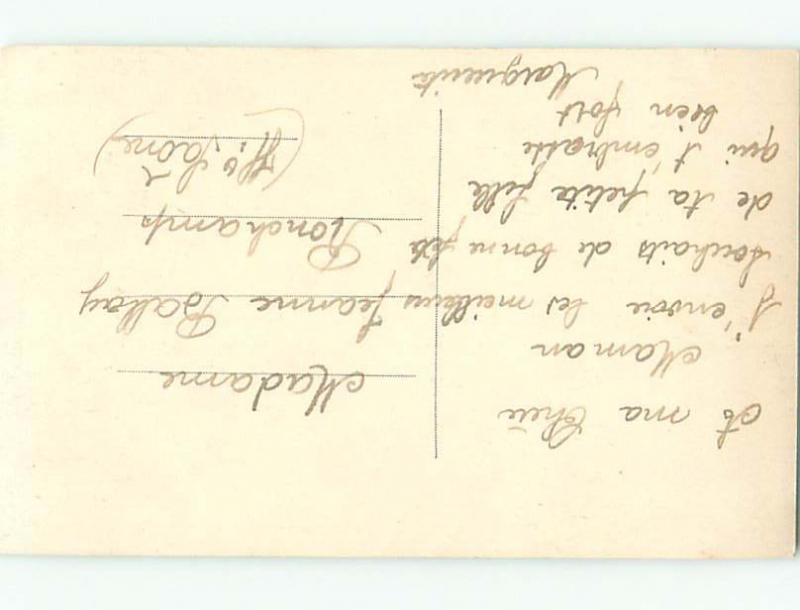 A ma Cherie
Maman
J'envoie les meilleurs
souhaits de bonne fête
de ta petite fille
qui t'embrasse
bien fort
Marguerite
Madame
Jeanne Ballay
Ronchamps
(Hte Saône)